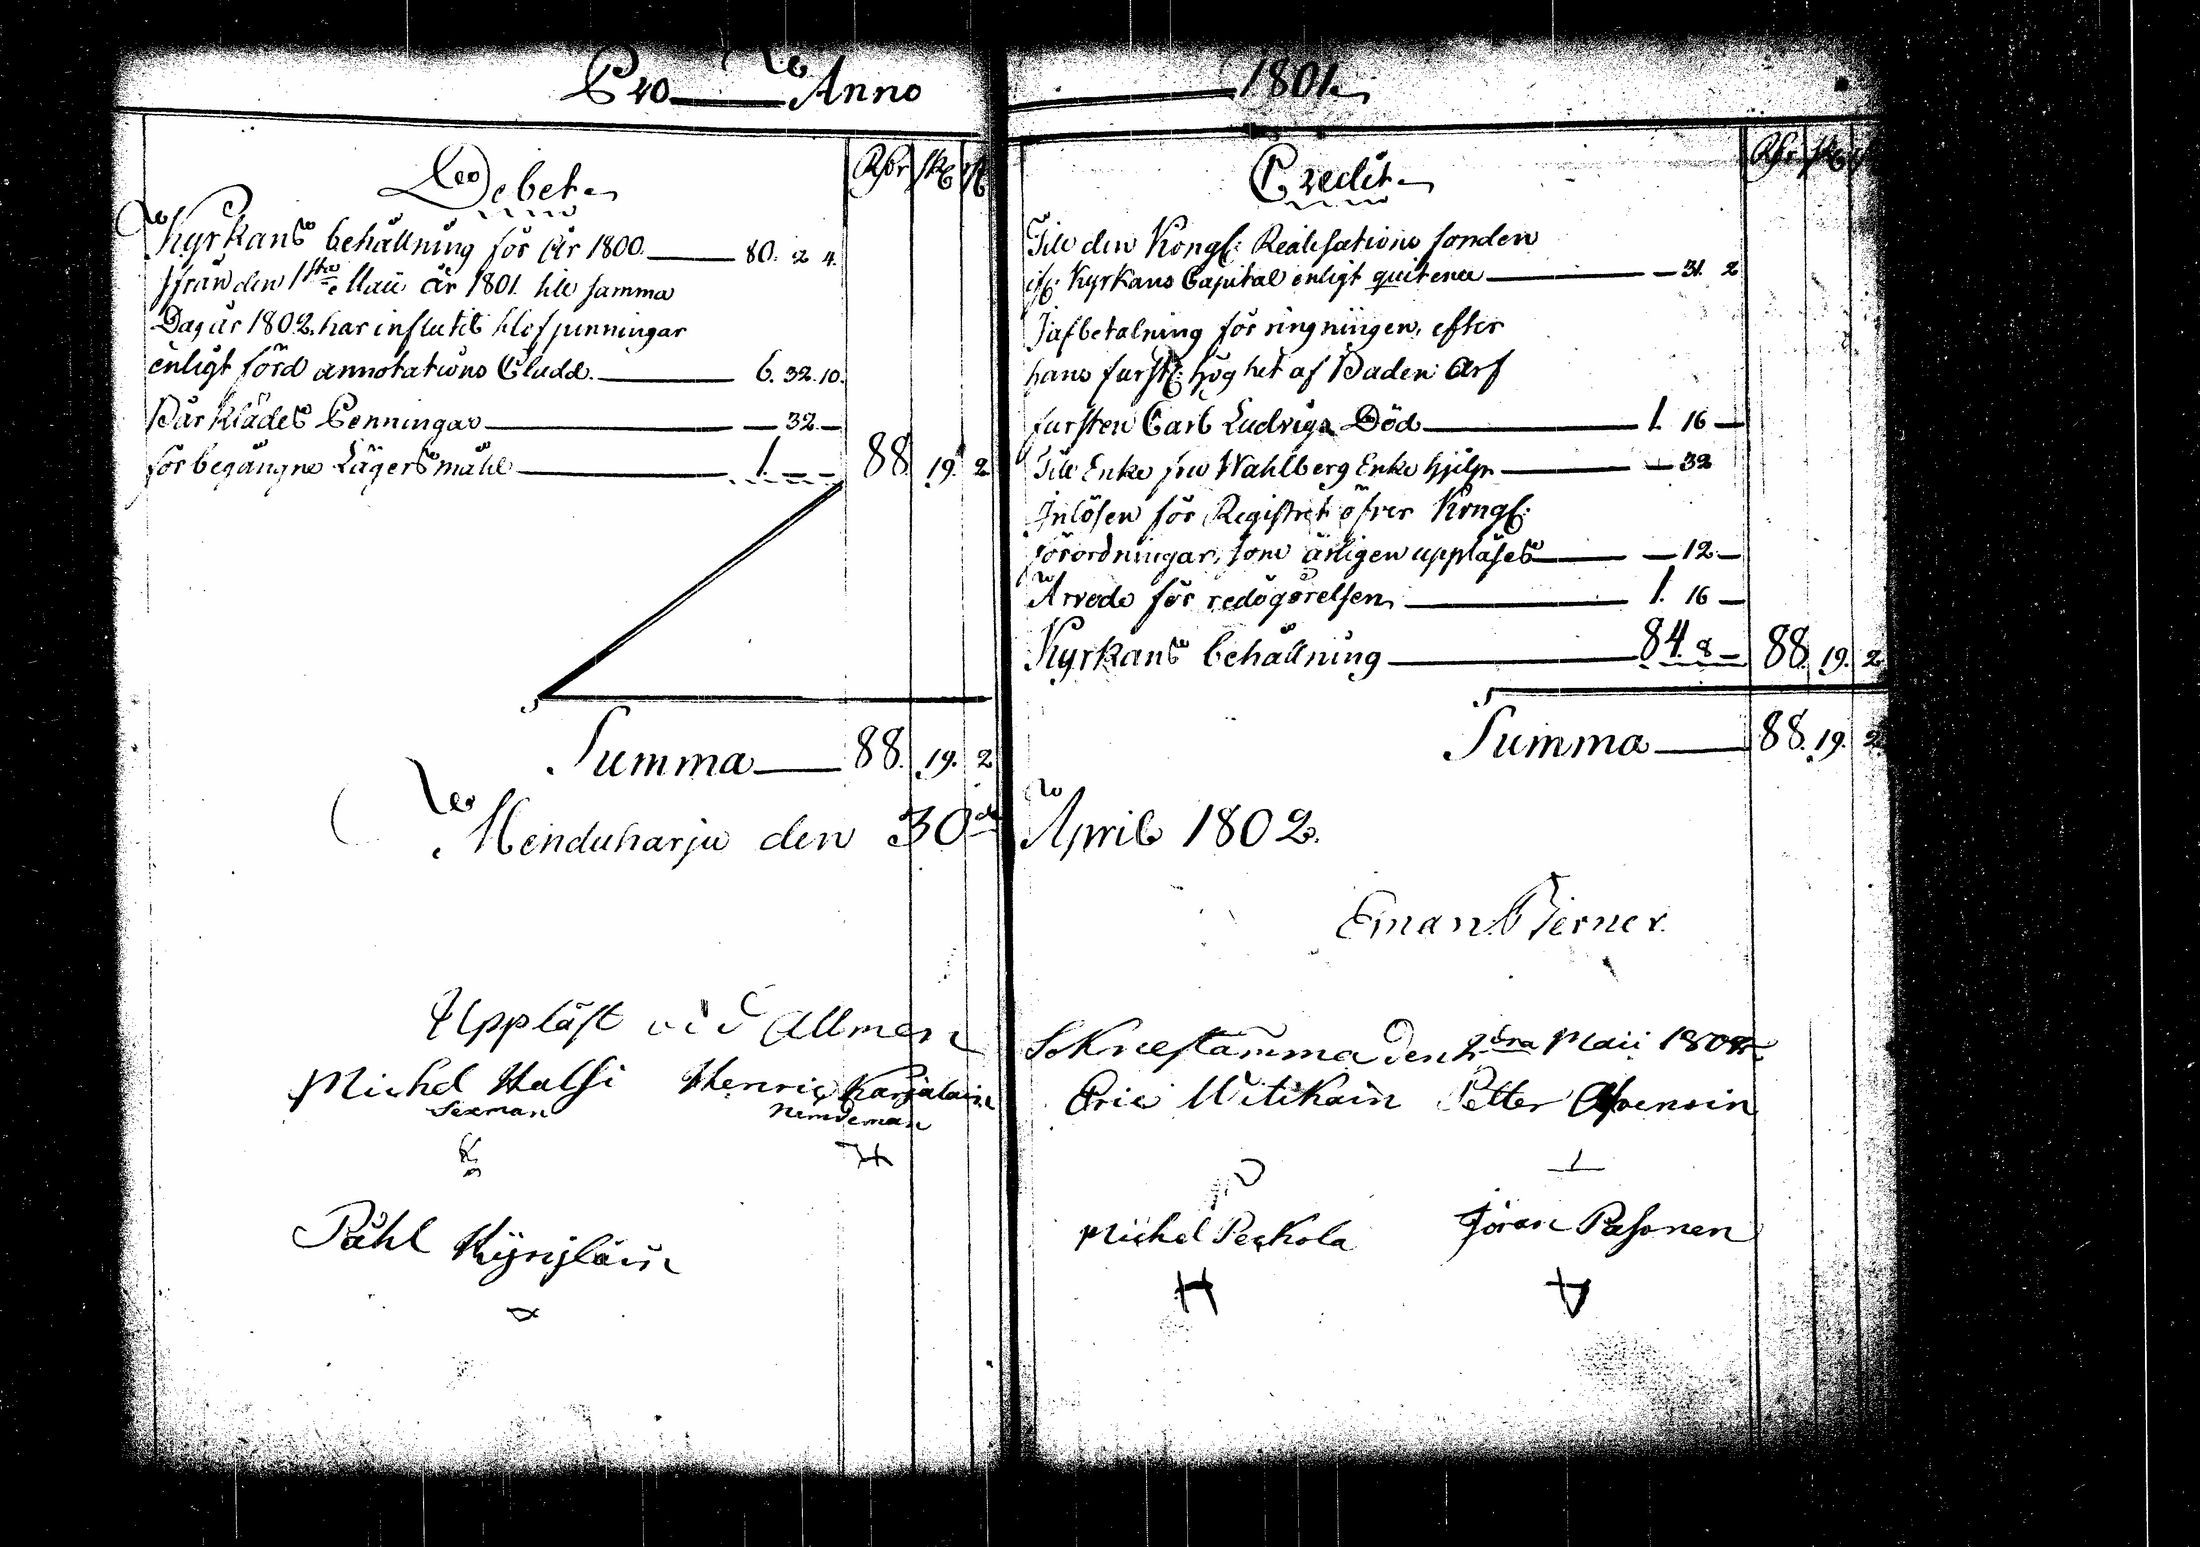 Pro Anno 1801.
Debet. Rdr sk. rst.
Kyrkans behållning för År 1800. 80. 2 4.
Ifrån den 1sta Maii år 1801. till samma
Dag år 1802. har influtit klofpenningar
enligt förd annotations Cludd. 6. 32. 10.
Bårklädes Penningar 32.
för begångne Lägersmåhl 1. 88. 19. 2
Summa 88. 19. 2
Credit. Rdr sk.
Till den Kongl: Realisations fonden
af Kyrkans Capital enligt quitence 31. 2
I afbetalning för ringningen, efter
hans furstl: höghet af Baden Arf
fursten Carl Ludvigs Död 1. 16
Till Enke fru Wahlberg Enke hjelp 32
Inlösen för Registret öfver Kongl:
förordningar, som årligen uppläses 12.
Arvode för redogörelsen 1. 16
Kyrkans behållning 84. 8 88. 19. 2
Summa 88. 19. 2
Menduharju den 30de April 1802.
Eman. Bjerner.
Uppläst vid Allmen Sokne stämma den 2dra Maii 1802.
Michel Halsi Henric Karjalain Eric Mitikain Petter
Sexman Nemdeman
Påhl Michel Peckola Jöran Pasonen